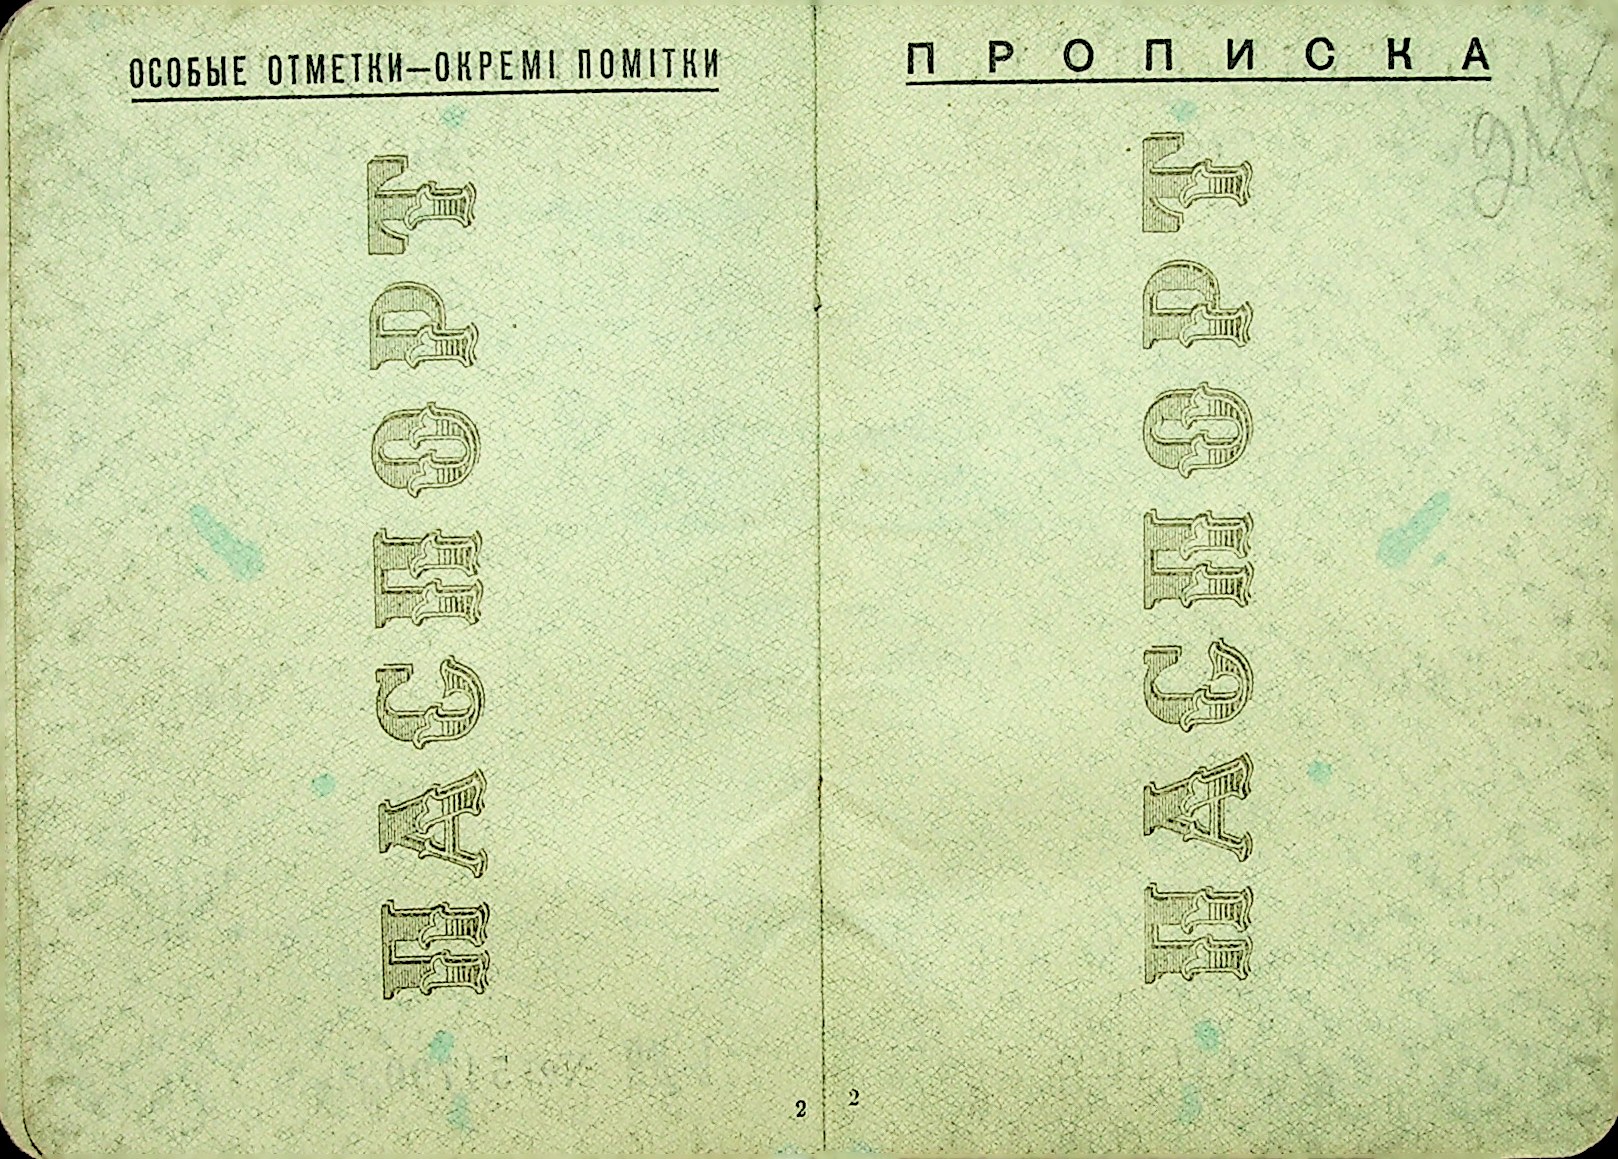 ОСОБЫЕ ОТМЕТКИ—ОКРЕМІ ПОМІТКИ
ПАСПОРТ
2
ПРОПИСКА
ПАСПОРТ
2